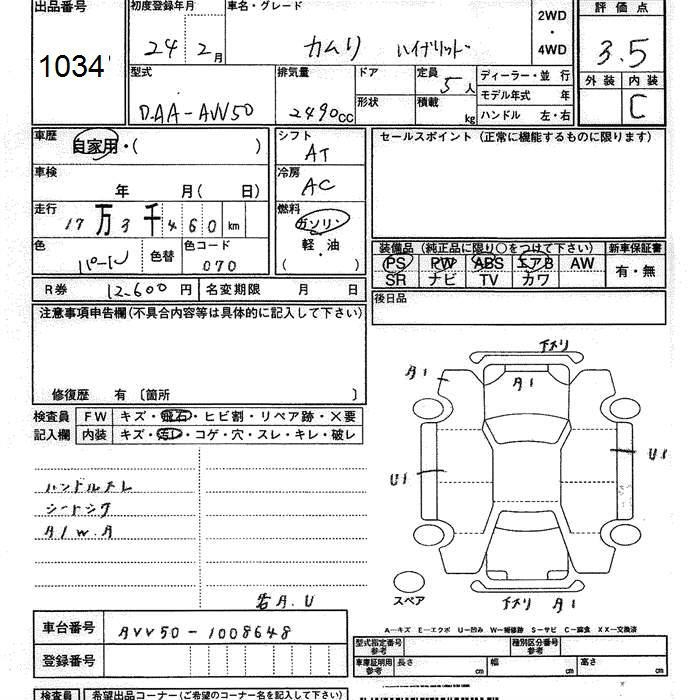 出品番号
1034
初度登録年月
24年2月
車名・グレード
カムリ ハイブリッド
2WD
・
4WD
評価点
3.5
外装 内装
C
型式
DAA-AVV50
排気量
2490cc
ドア
形状
定員
5人
積載
kg
ディーラー・並行
モデル年式 年
ハンドル 左・右
車歴
自家用・( )
シフト
AT
セールスポイント(正常に機能するものに限ります)
車検
年 月( 日)
冷房
AC
走行
17万3千460km
燃料
ガソリン
軽・油
( )
色
パール
色替
色コード
070
装備品(純正品に限り○をつけて下さい)
PS PW ABS エアB AW
SR ナビ TV カワ
新車保証書
有・無
R券 12,600円
名変期限 月 日
後日品
注意事項申告欄(不具合内容等は具体的に記入して下さい)
修復歴 有〔箇所 〕
検査員
記入欄
FW キズ・飛石・ヒビ割・リペア跡・×要
内装 キズ・汚レ・コゲ・穴・スレ・キレ・破レ
ハンドルスレ
シートシワ
A/W.A
各A.U
下スリ
A1
A1
U1
U1
スペア
下スリ A1
A-キズ E-エクボ U-凹み W-補修跡 S-サビ C-腐食 XX-交換済
車台番号
AVV50-1008648
登録番号
型式指定番号
参考
種別区分番号
参考
車庫証明用
参考
長さ cm
幅 cm
高さ cm
検査員
希望出品コーナー(ご希望のコーナー名を記入下さい)